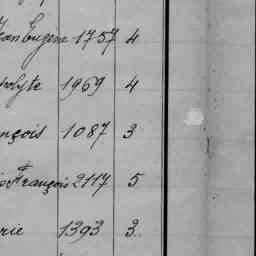 Jean Eugène 1757 4
polyte 1969 4
nçois 1087 3
François 2117 5
rie 1393 3